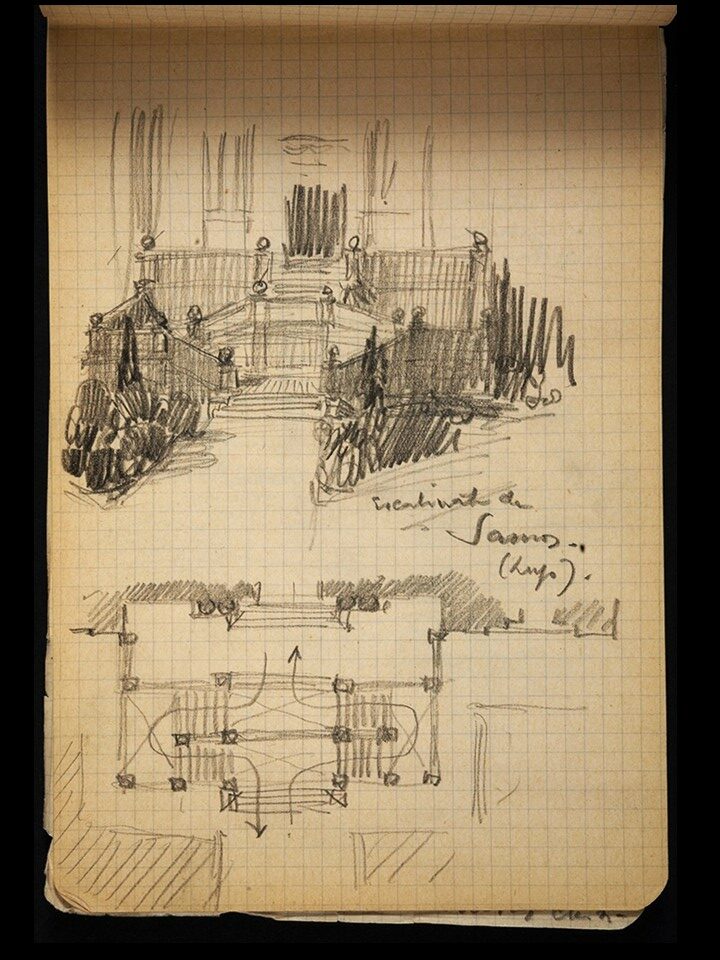 Escalinata de
Samos..
(Lugo).